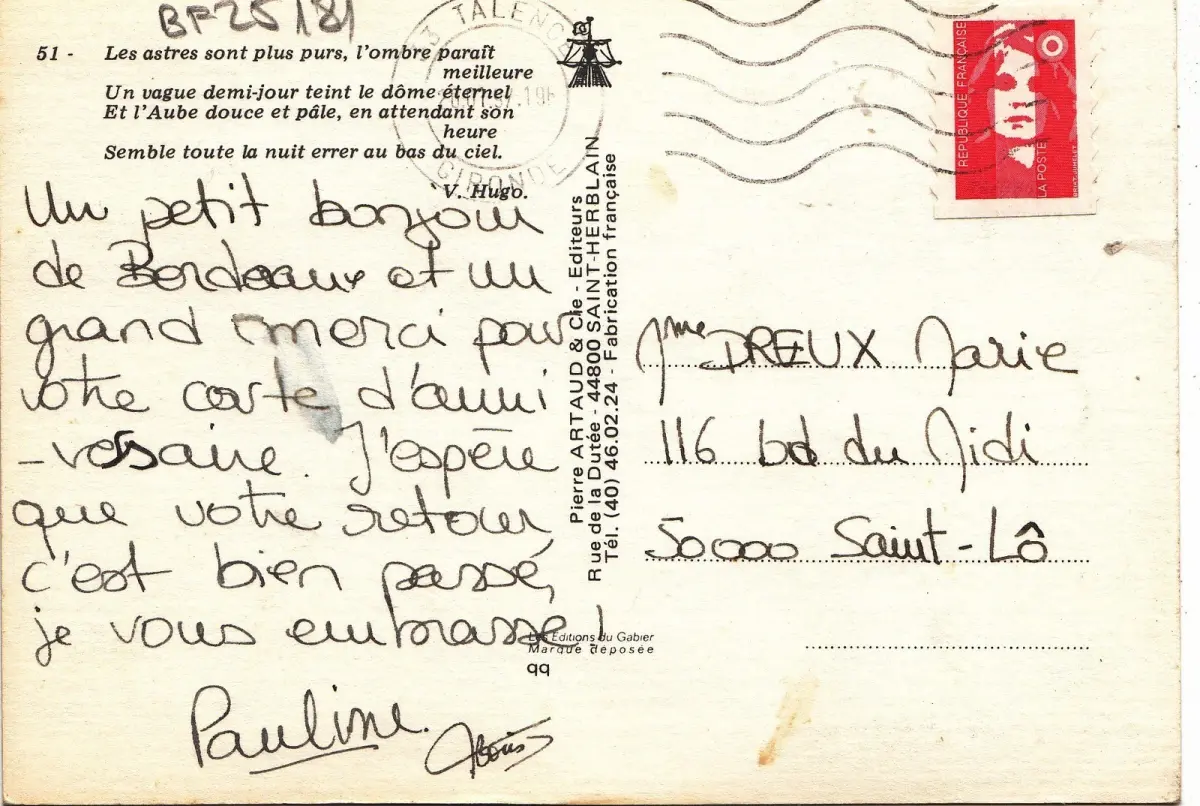 BF25181
51 - Les astres sont plus purs, l'ombre paraît
meilleure
Un vague demi-jour teint le dôme éternel
Et l'Aube douce et pâle, en attendant son
heure
Semble toute la nuit errer au bas du ciel.
V. Hugo.
Un petit bonjour
de Bordeaux et un
grand merci pour
votre carte d'anni
-versaire. J'espère
que votre retour
c'est bien passé,
je vous embrasse!
Pauline.
Pierre ARTAUD & Cie - Editeurs
Rue de la Dutée - 44800 SAINT-HERBLAIN
Tél. (40) 46.02.24 - Fabrication française
Les Editions du Gabier
Marque déposée
qq
TALENCE
GIRONDE
REPUBLIQUE FRANÇAISE
LA POSTE
Mme DREUX Marie
116 bd du Midi
50000 Saint-Lô